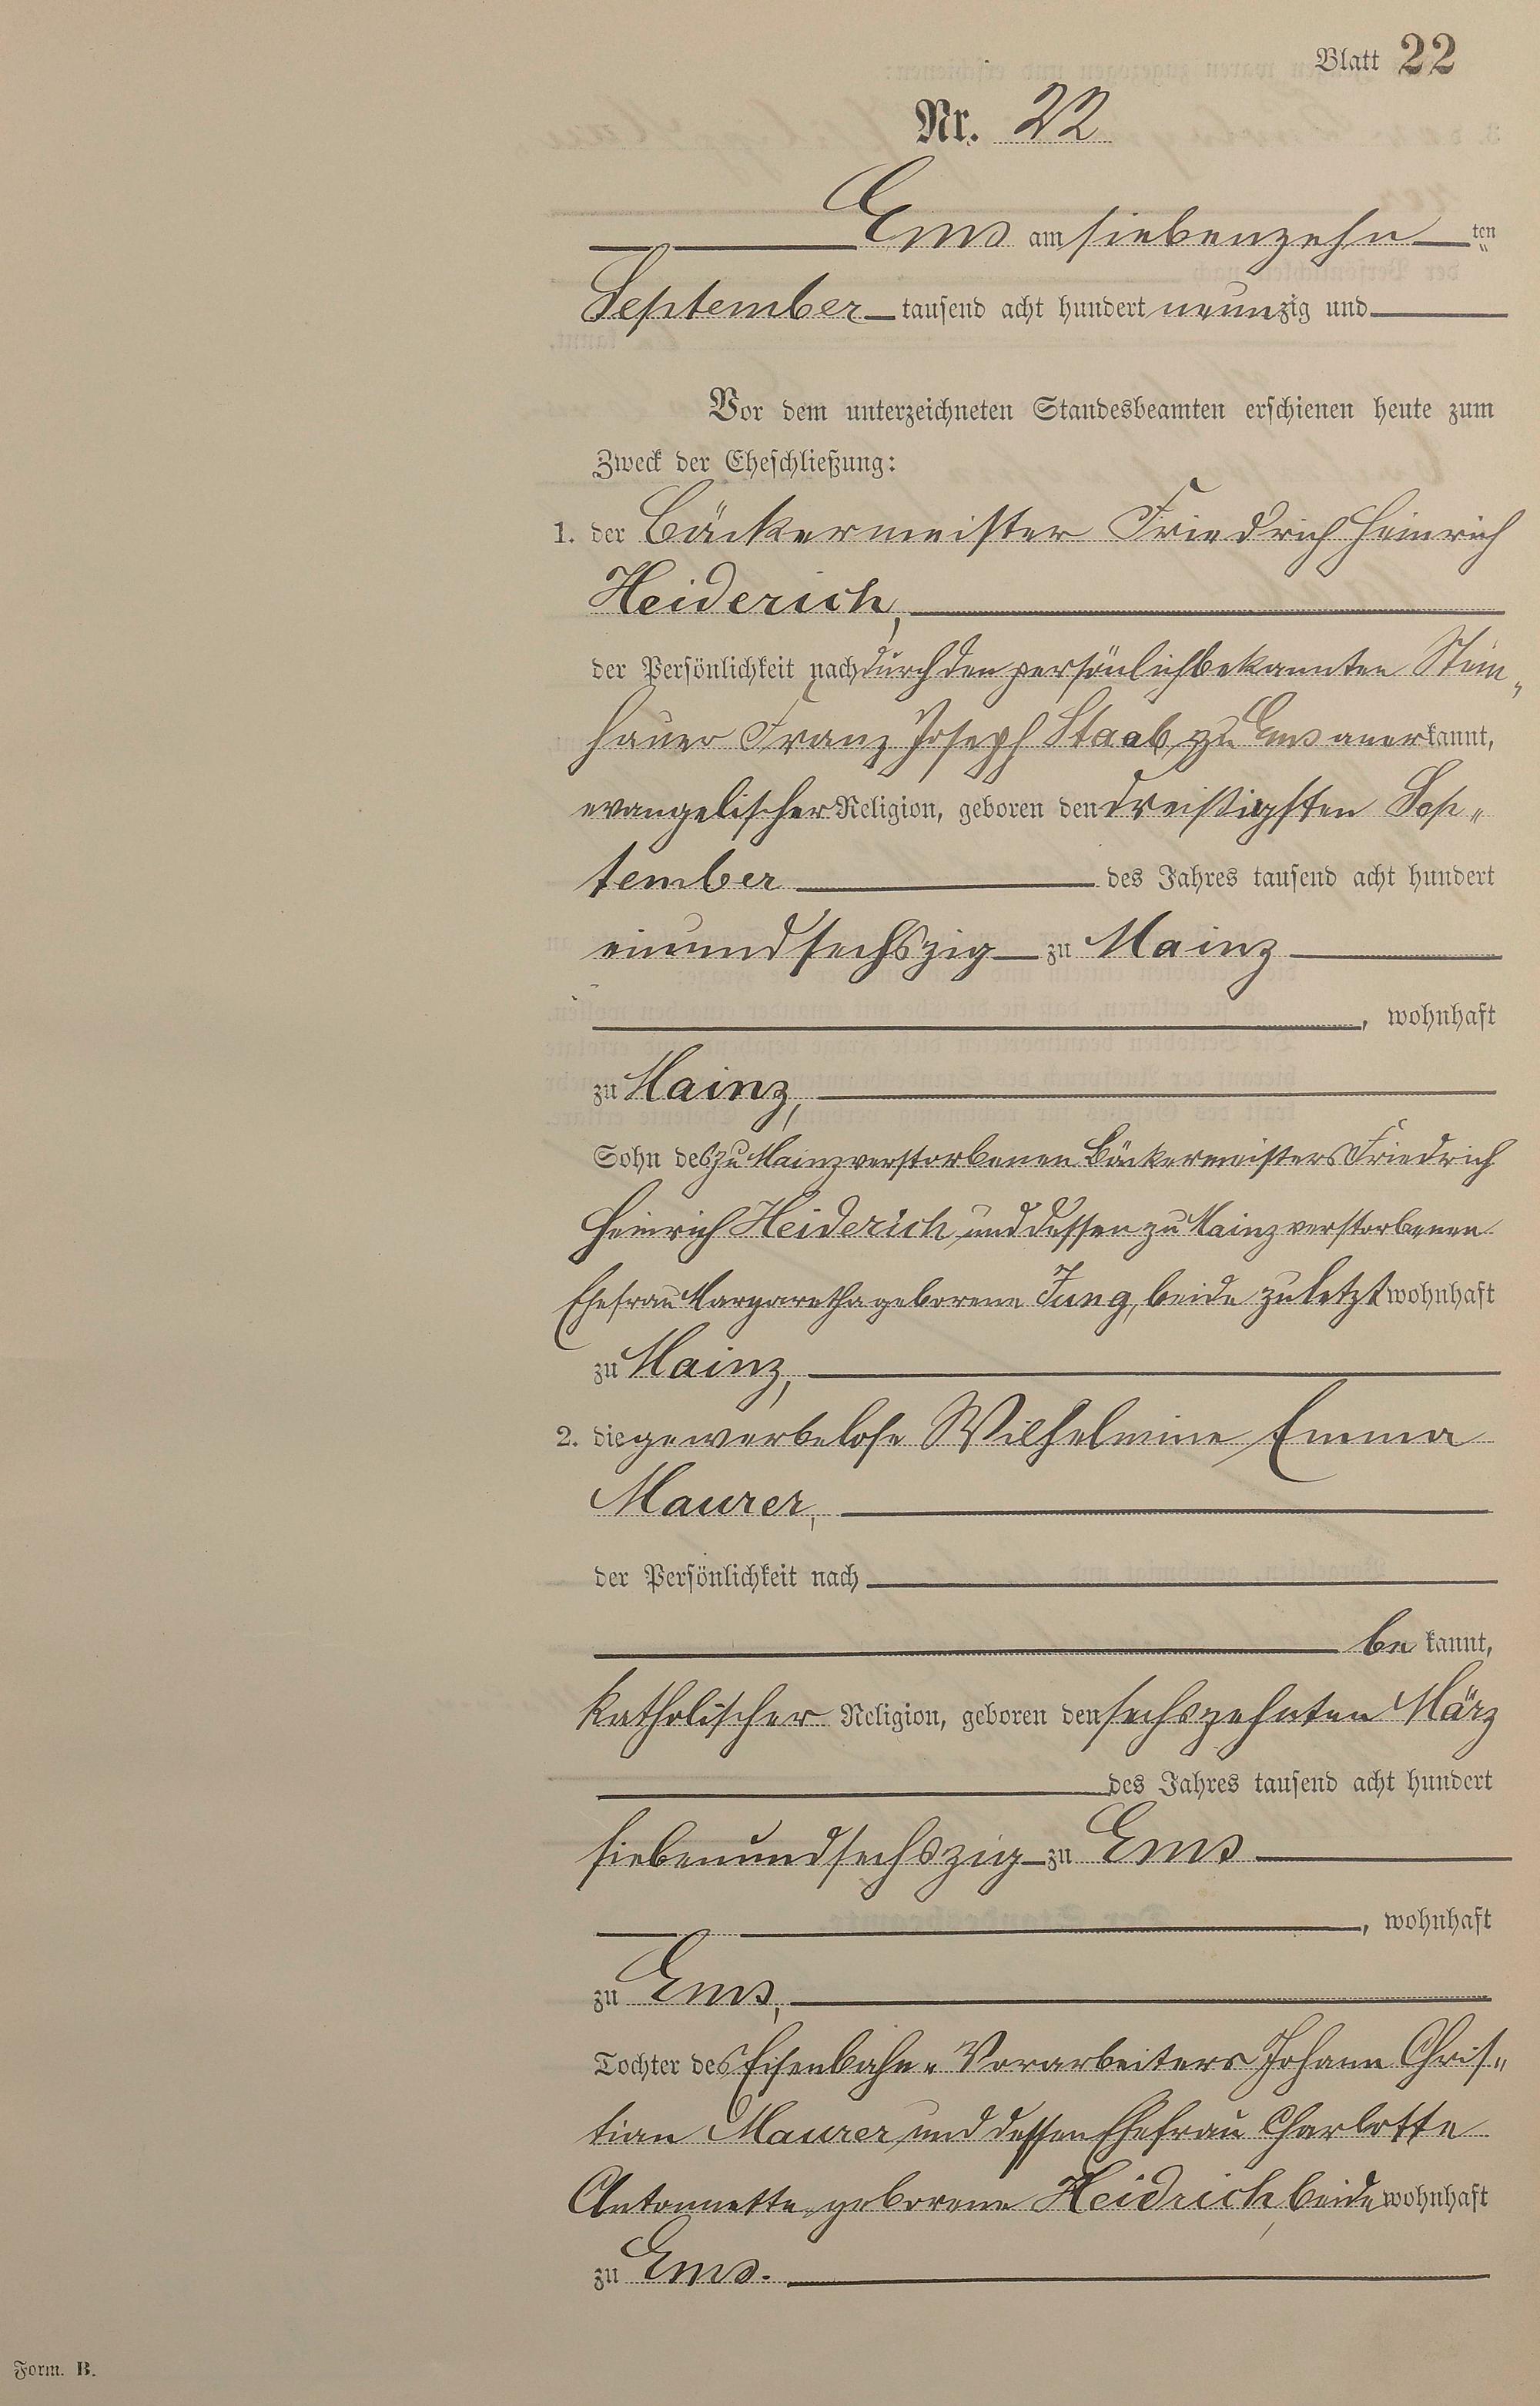 Blatt 22
Nr. 22
Ems am siebenzehnten
September tausend acht hundert neunzig und
Vor dem unterzeichneten Standesbeamten erschienen heute zum
Zweck der Eheschließung:
1. der Bäckermeister Friedrich Heinrich
Heiderich,
der Persönlichkeit nach durch den persönlich bekannten Stein„
hauer Franz Joseph Staab zu Ems anerkannt,
evangelischer Religion, geboren den dreißigsten Sep„
tember des Jahres tausend acht hundert
einundsechszig zu Mainz
, wohnhaft
zu Mainz,
Sohn des zu Mainz verstorbenen Bäckermeisters Friedrich
Heinrich Heiderich und dessen zu Mainz verstorbenen
Ehefrau Margaretha geborene Jung, beide zuletzt wohnhaft
zu Mainz,
2. die gewerbelose Wilhelmine Emma
Maurer,
der Persönlichkeit nach
bekannt,
katholischer Religion, geboren den sechszehnten März
des Jahres tausend acht hundert
siebenundsechszig zu Ems
, wohnhaft
zu Ems,
Tochter des Eisenbahn„Vorarbeiters Johann Chris„
tian Maurer und dessen Ehefrau Charlotte
Antonnette, geborene Heidrich, beide wohnhaft
zu Ems.
Form. B.